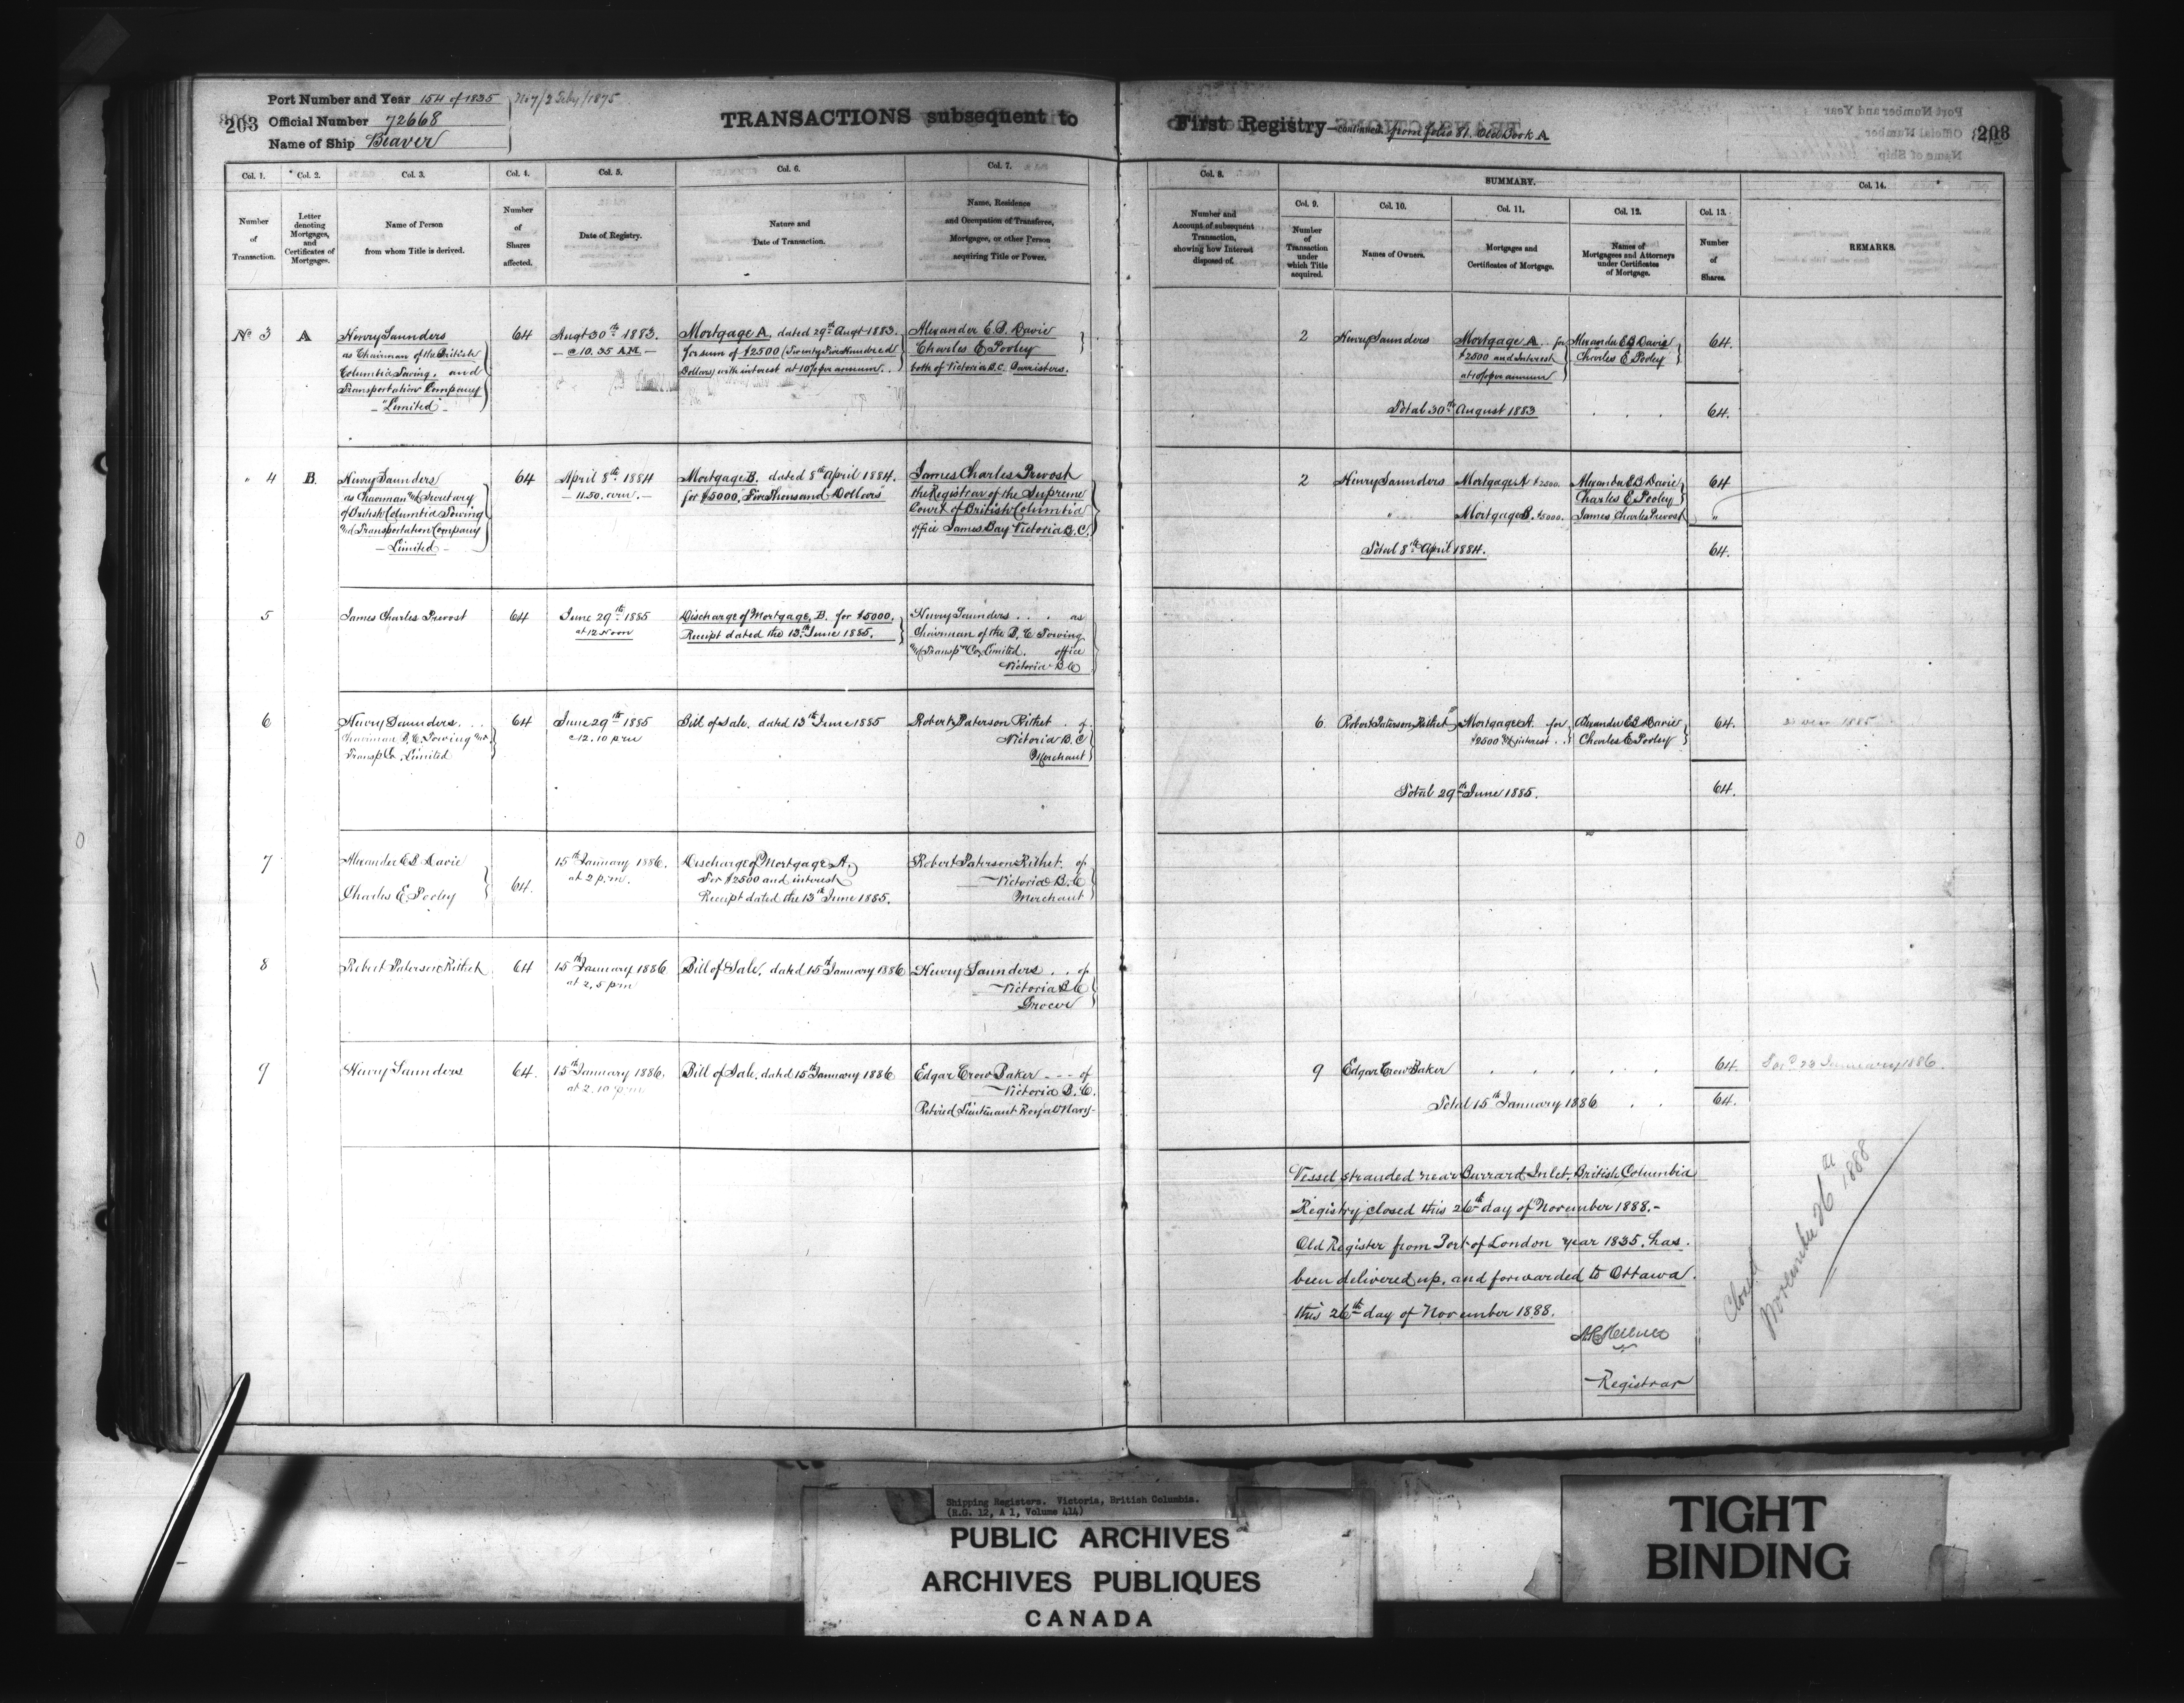 Port Number and Year 154 of 1835 No 7/2 Feby/1875
203 Official Number 72668
Name of Ship Beaver
TRANSACTIONS subsequent to First Registry—continued. from folio 81. Old Book A
203
Col. 1. Number of Transaction.
Col. 2. Letter denoting Mortgages, and Certificates of Mortgages.
Col. 3. Name of Person from whom Title is derived.
Col. 4. Number of Shares affected.
Col. 5. Date of Registry.
Col. 6. Nature and Date of Transaction.
Col. 7. Name, Residence and Occupation of Transferee, Mortgagee, or other Person acquiring Title or Power.
Col. 8. Number and Account of subsequent Transaction, showing how Interest disposed of.
SUMMARY.
Col. 9. Number of Transaction under which Title acquired.
Col. 10. Names of Owners.
Col. 11. Mortgages and Certificates of Mortgage.
Col. 12. Names of Mortgagees and Attorneys under Certificates of Mortgage.
Col. 13. Number of Shares.
Col. 14. REMARKS.
No 3
A
Henry Saunders
as Chairman of the British
Columbia Towing, and
Transportation Company
"Limited"
64
Augt 30th 1883.
@ 10.35 A.M.
Mortgage A. dated 29th Augt 1883.
for sum of $2500 (Twenty Five Hundred
Dollars) with interest at 10% per annum.
Alexander E. B. Davie
Charles E Pooley
both of Victoria B.C. Barristers.
2
Henry Saunders
Mortgage A. for
$2500 and Interest
at 10% per annum
Alexander E B Davie
Charles E Pooley
64.
Total 30th August 1883
64.
" 4
B.
Henry Saunders
as Chairman and Secretary
of British Columbia Towing
and Transportation Company
Limited
64
April 8th 1884
11.50. a.m.
Mortgage B. dated 8th April 1884.
for $5000. "Five Thousand Dollars"
James Charles Prevost
the Registrar of the Supreme
Court of British Columbia
office James Bay Victoria B.C.
2
Henry Saunders
Mortgage A $2500.
Alexander E B Davie
Charles E Pooley
64
"
Mortgage B. $5000.
James Charles Prevost
"
Total 8th April 1884.
64.
5
James Charles Prevost
64
June 29th 1885
at 12 Noon
Discharge of Mortgage, B. for $5000.
Receipt dated the 13th June 1885.
Henry Saunders . . . as
Chairman of the B. C Towing
and Transpn Co, Limited. office
Victoria B C
6
Henry Saunders. . .
Chairman B. C. Towing and
Transp Co. Limited
64
June 29th 1885
@ 12.10 pm
Bill of Sale. dated 13th June 1885
Robert Paterson Rithet . of
Victoria B. C
Merchant
6.
Robert Paterson Rithet
Mortgage A. for
$2500 & interest
Alexander E B Davie
Charles E Pooley
64.
Total 29th June 1885.
64.
7
Alexander E B Davie
Charles E. Pooley
64.
15th January 1886.
at 2 p.m.
Discharge of Mortgage A.
For $2500 and interest
Receipt dated the 13th June 1885.
Robert Paterson Rithet. of
Victoria B. C
Merchant
8
Robert Paterson Rithet
64
15th January 1886
at 2.5 pm
Bill of Sale. dated 15th January 1886
Henry Saunders . . of
Victoria B C
Grocer
9
Henry Saunders
64.
15th January 1886.
at 2.10 pm
Bill of Sale. dated 15th January 1886
Edgar Crow Baker - - - of
Victoria B. C.
Retired Lieutenant Royal Navy-
9
Edgar Crow Baker
64.
23 January 1886.
Total 15th January 1886
64.
Vessel stranded near Burrard Inlet. British Columbia
Registry closed this 26th day of November 1888.-
Old Register from Port of London year 1835. has
been delivered up. and forwarded to Ottawa.
this 26th day of November 1888.
Registrar
Closed
November 26th 1888
Shipping Registers. Victoria, British Columbia.
(R.G. 12, A 1, Volume 414)
PUBLIC ARCHIVES
ARCHIVES PUBLIQUES
CANADA
TIGHT
BINDING